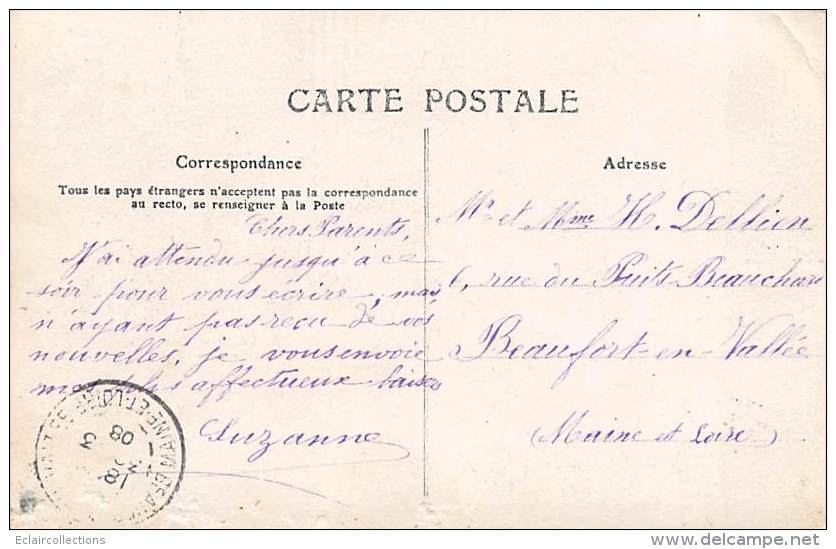 CARTE POSTALE
Correspondance
Tous les pays étrangers n'acceptent pas la correspondance
au recto, se renseigner à la Poste
Chers Parents,
J'ai attendu jusqu'à ce
soir pour vous écrire, mais
n'ayant pas reçu de vos
nouvelles, je vous envoie
mes plus affectueux baisers
Suzanne
Adresse
Mr et Mme H. Dellien
6, rue du Puits Beauchars
Beaufort-en-Vallée
(Maine et Loire)
MAINE-ET-LOIRE
18
3
08
Eclaircollections
www.delcampe.net